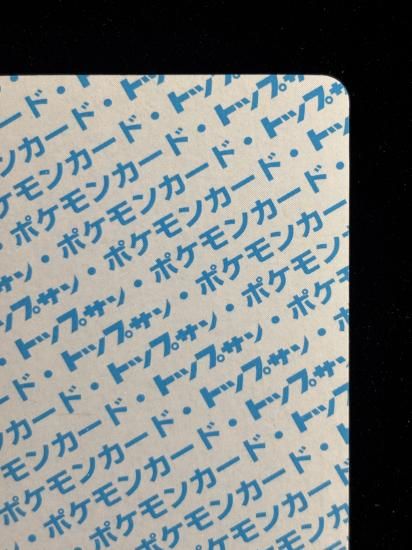 ード・
ンカード・トップ
ケモンカード・トップサ
・ポケモンカード・トップサン
・ポケモンカード・トップサ
ン・ポケモンカード・トッ
サン・ポケモンカード・
ップサン・ポケモンカー
・トップサン・ポケモン
ード・トップサン・ポ
カード・トップサン・
ンカード・トップサン
ケモンカード・トップ
ポケモンカード・
・ポケモンカード
ポケモンカ
ポケモン